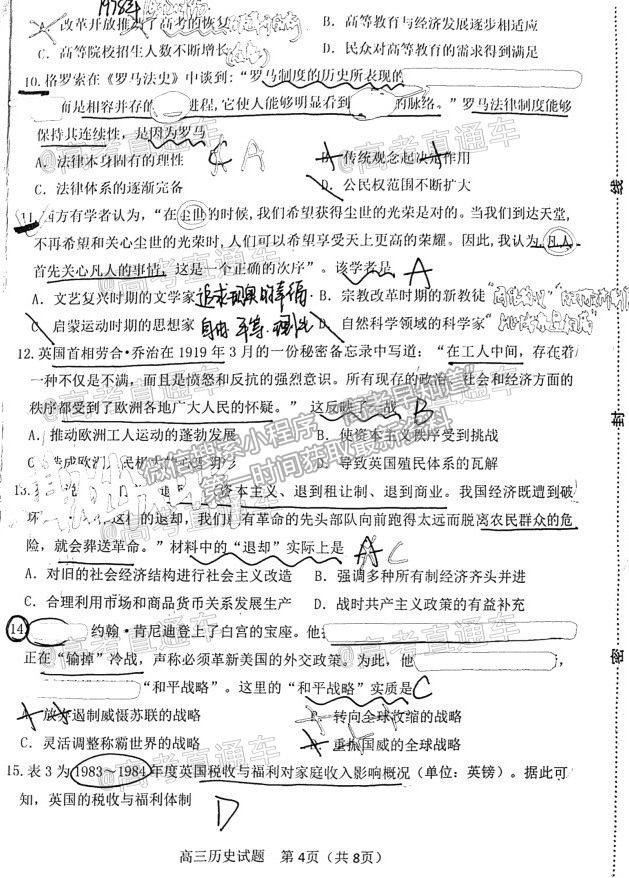 1978年
A. 改革开放推动了高考的恢复 B. 高等教育与经济发展逐步相适应
C. 高等院校招生人数不断增长 D. 民众对高等教育的需求得到满足
10. 格罗索在《罗马法史》中谈到：“罗马制度的历史所表现的
而是相容并存的 进程，它使人能够明显看到 的脉络。”罗马法律制度能够
保持其连续性，是因为罗马
A. 法律本身固有的理性 C A B. 传统观念起 作用
C. 法律体系的逐渐完备 D. 公民权范围不断扩大
11. 西方有学者认为，“在尘世的时候，我们希望获得尘世的光荣是对的。当我们到达天堂，
不再希望和关心尘世的光荣时，人们可以希望享受天上更高的荣耀。因此，我认为，凡人
首先关心凡人的事情，这是一个正确的次序”。该学者是 A
A. 文艺复兴时期的文学家 追求现实的幸福 B. 宗教改革时期的新教徒
C. 启蒙运动时期的思想家 自由 平等 理性 D. 自然科学领域的科学家
12. 英国首相劳合·乔治在 1919 年 3 月的一份秘密备忘录中写道：“在工人中间，存在着
一种不仅是不满，而且是愤怒和反抗的强烈意识。所有现存的政治、社会和经济方面的
秩序都受到了欧洲各地广大人民的怀疑。”这反映了一战 B
A. 推动欧洲工人运动的蓬勃发展 B. 使资本主义秩序受到挑战
C. 造成欧洲 D. 导致英国殖民体系的瓦解
13. 资本主义、退到租让制、退到商业。我国经济既遭到破
坏 这样的退却，我们所有革命的先头部队向前跑得太远而脱离农民群众的危
险，就会葬送革命。”材料中的“退却”实际上是 A C
A. 对旧的社会经济结构进行社会主义改造 B. 强调多种所有制经济齐头并进
C. 合理利用市场和商品货币关系发展生产 D. 战时共产主义政策的有益补充
14. 约翰·肯尼迪登上了白宫的宝座。他
正在“输掉”冷战，声称必须革新美国的外交政策。为此，他
“和平战略”。这里的“和平战略”实质是 C
A. 放弃遏制威慑苏联的战略 B. 转向全球收缩的战略
C. 灵活调整称霸世界的战略 D. 重振国威的全球战略
15. 表 3 为 1983～1984 年度英国税收与福利对家庭收入影响概况（单位：英镑）。据此可
知，英国的税收与福利体制 D
高三历史试题 第 4页（共 8页）
线
封
密
@高考直通车
微信搜索小程序“高考早知道”
第一时间获取最新资料